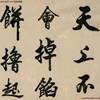 天上不
會掉餡
餅擼起